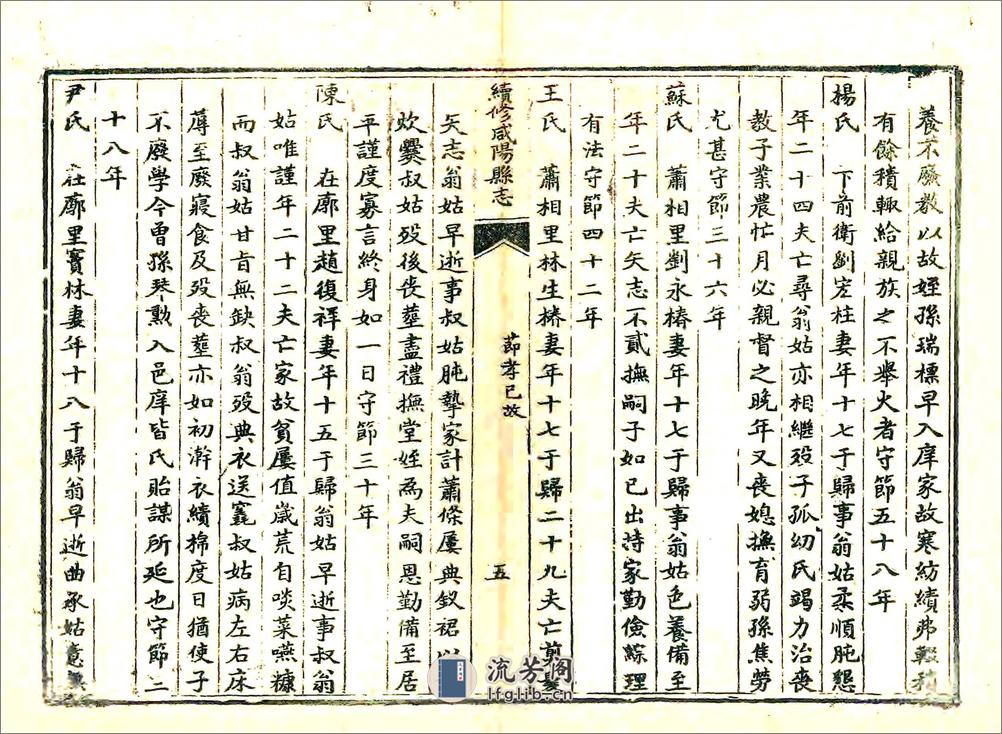 養不廢教以故姪孫瑞標早入庠家故寒紡績弗輟稍
有餘積輙給親族之不舉火者守節五十八年
楊氏 下前衛劉宏柱妻年十七于歸事翁姑柔順肫懇
年二十四夫亡尋翁姑亦相繼歿子孤幼氏竭力治喪
教子業農忙月必親督之晚年又喪媳撫育弱孫焦勞
尤甚守節三十六年
蘇氏 蕭相里劉永椿妻年十七于歸事翁姑色養備至
年二十夫亡矢志不貳撫嗣子如已出持家勤儉綜理
有法守節四十二年
王氏 蕭相里林生椿妻年十七于歸二十九夫亡剪
續修咸陽縣志
節孝已故
五
矢志翁姑早逝事叔姑肫摯家計蕭條屢典釵裙以
炊爨叔姑歿後喪塟盡禮撫堂姪為夫嗣恩勤備至居
平謹度寡言終身如一日守節三十年
陳氏 在廓里趙復祥妻年十五于歸翁姑早逝事叔翁
姑唯謹年二十二夫亡家故貧屢值歲荒自啖菜嚥糠
而叔翁姑甘旨無缺叔翁歿典衣送窆叔姑病左右床
蓐至廢寢食及歿喪塟亦如初澣衣績棉度日猶使子
不廢學今曾孫琴勲入邑庠皆氏貽謀所延也守節二
十八年
尹氏 在廓里竇林妻年十八于歸翁早逝曲承姑意
流芳阁
lfglib.cn